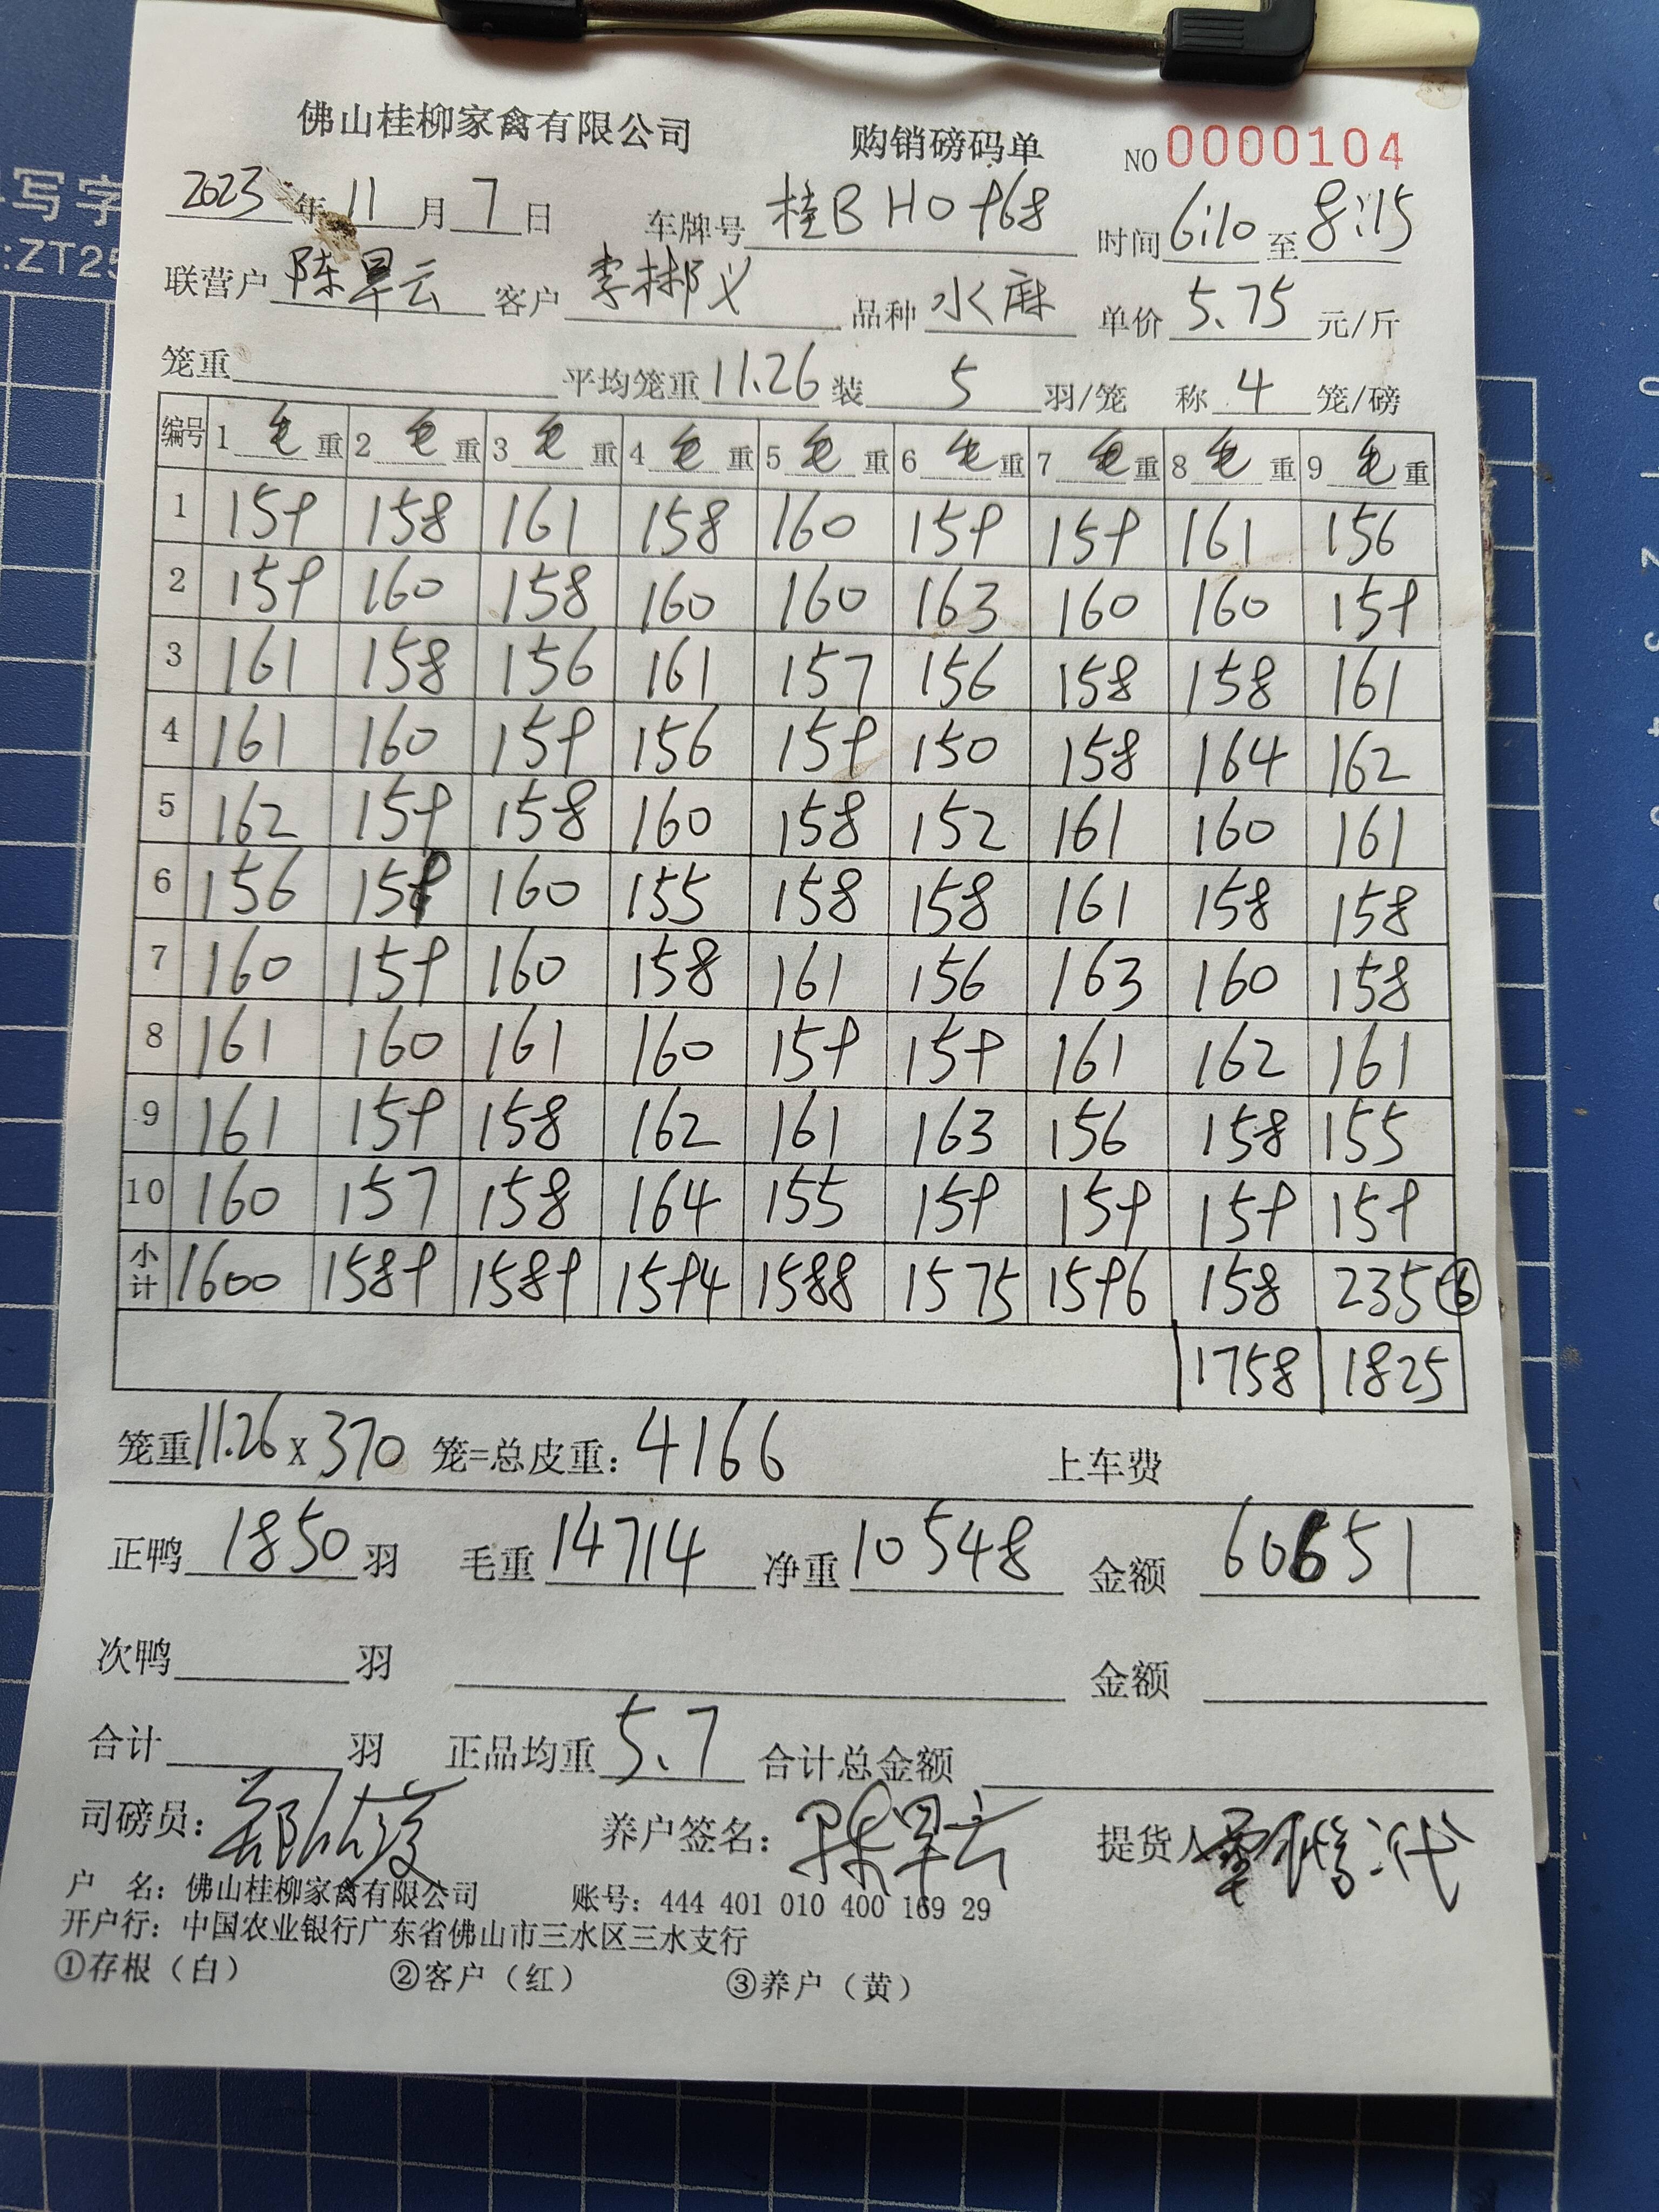 佛山桂柳家禽有限公司 购销磅码单 NO 0000104
2023年11月7日 车牌号 桂BH0968 时间 6:10 至 8:15
联营户 陈旱云 客户 李彬义 品种 水麻 单价 5.75 元/斤
笼重 平均笼重 11.26 装 5 羽/笼 称 4 笼/磅
编号 1 毛重 2 毛重 3 毛重 4 毛重 5 毛重 6 毛重 7 毛重 8 毛重 9 毛重
1 159 158 161 158 160 159 159 161 156
2 159 160 158 160 160 163 160 160 159
3 161 158 156 161 157 156 158 158 161
4 161 160 159 156 159 150 158 164 162
5 162 159 158 160 158 152 161 160 161
6 156 159 160 155 158 158 161 158 158
7 160 159 160 158 161 156 163 160 158
8 161 160 161 160 159 159 161 162 161
9 161 159 158 162 161 163 156 158 155
10 160 157 158 164 155 159 159 159 159
小计 1600 1589 1589 1594 1588 1575 1596 158 235 ⑥
1758 1825
笼重 11.26 x 370 笼=总皮重: 4166 上车费
正鸭 1850 羽 毛重 14714 净重 10548 金额 60651
次鸭 羽 金额
合计 羽 正品均重 5.7 合计总金额
司磅员: 养户签名: 陈旱云 提货人 代
户 名: 佛山桂柳家禽有限公司 账号: 444 401 010 400 169 29
开户行: 中国农业银行广东省佛山市三水区三水支行
①存根（白） ②客户（红） ③养户（黄）
写字
:ZT25